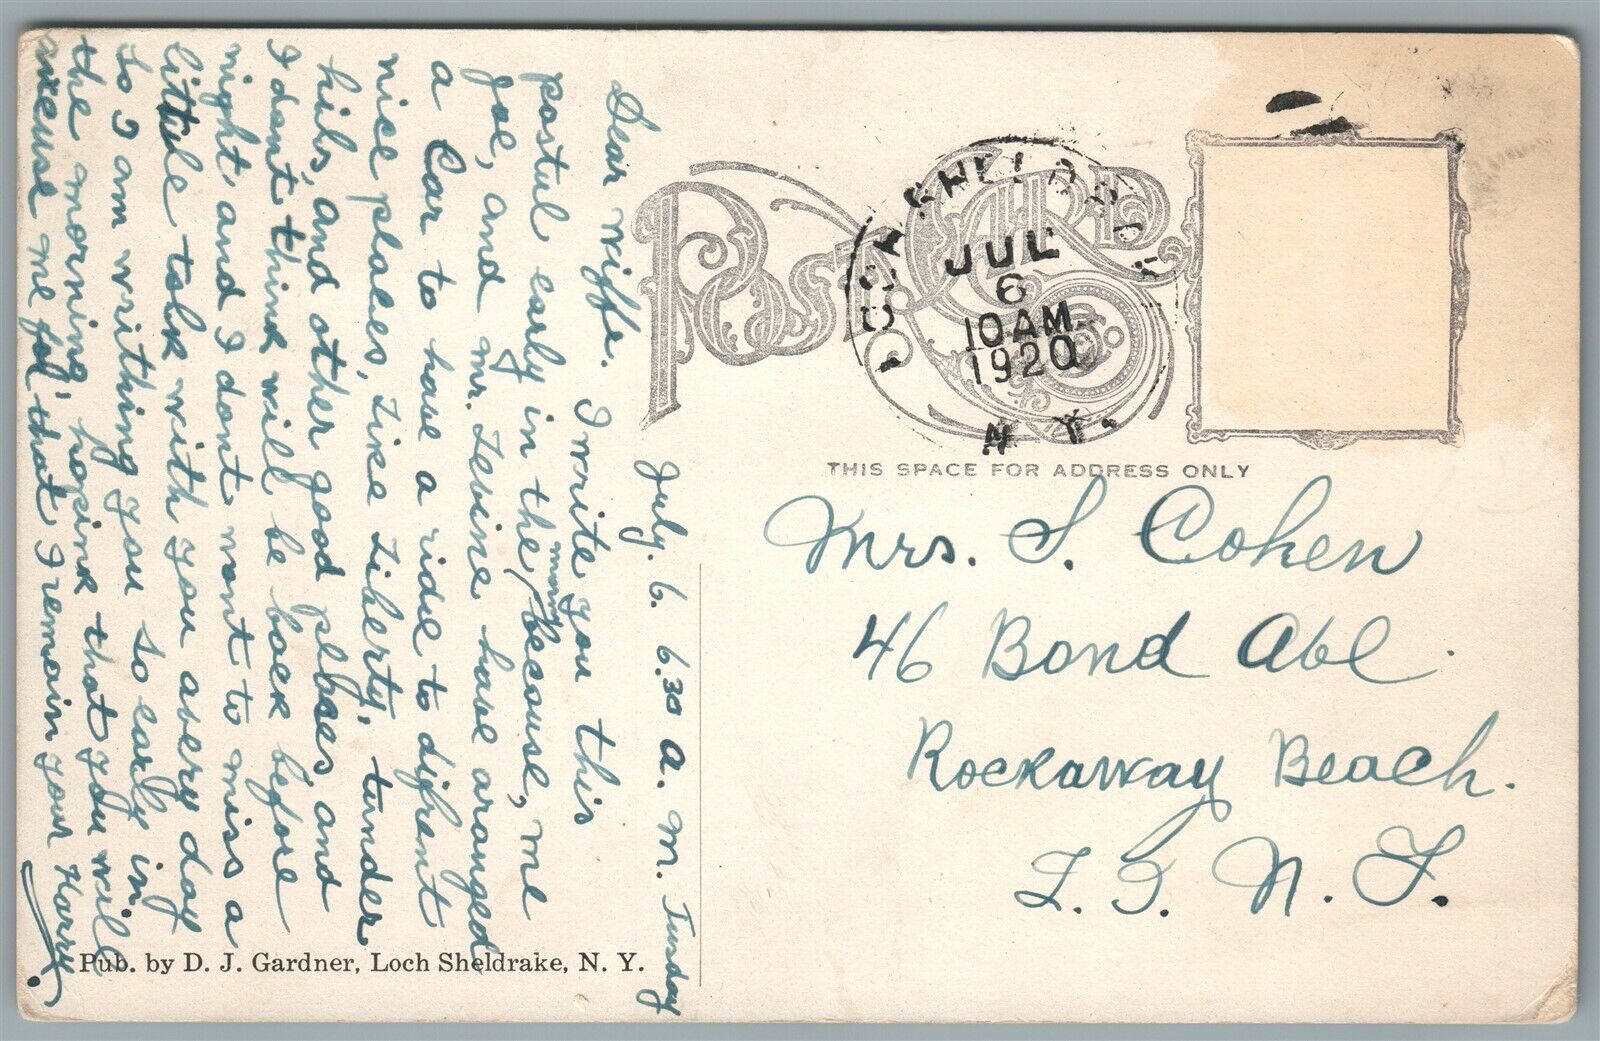 July. 6. 6.30 A. M. Tusday
Dear wiffe. I write you this
postul early in the morning because, me
Joe, and mr. Levine have aranged
a Car to have a ride to difrent
nice places, Like Liberty, tunder
hils, and other good plases, and
I dont think will be back before
night, and I dont wont to miss a
little talk with you avery day
so I am writhing you so early in
the morning, hoping that you will
axcuse me for that I remain your Harry.
Pub. by D. J. Gardner, Loch Sheldrake, N. Y.
POST CARD
LOCH SHELDRAKE
JUL
6
10 AM
1920
N. Y.
THIS SPACE FOR ADDRESS ONLY
Mrs. S. Cohen
46 Bond Ave.
Rockaway Beach.
L. I. N. Y.